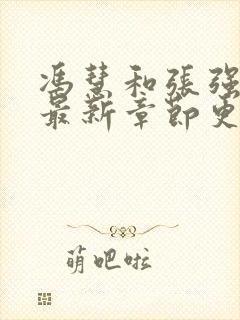 馮慧和張強
最新章節更
萌吧啦